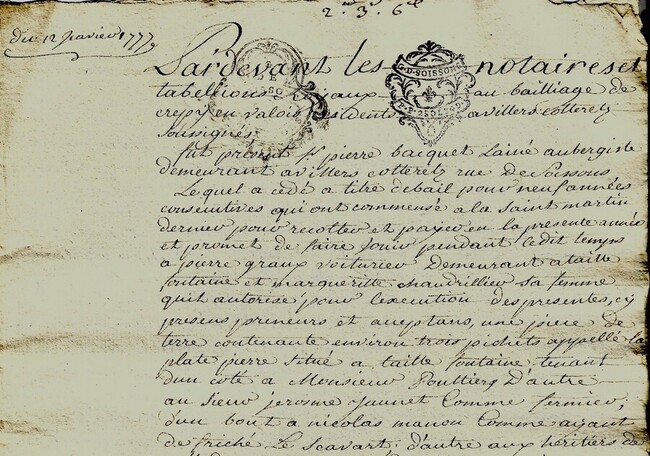 2. 3. 6d
du 12 janvier 1777
Pardevant les notaires et
tabellions royaux au bailliage de
crepy en valois residents a villers cotteretz
soussignés
fut present Sr pierre bacquet Lainé aubergiste
demeurant a villers cotteretz rue de Soissons
Lequel a cédé a titre de bail pour neuf années
consecutives qui ont commensé a la saint martin
dernier pour recolter et payer en la presente année
et promet de faire Jouir pendant ledit temps
a pierre graux voiturier Demeurant a taille
fontaine et margueritte chaudrillier sa femme
quil autorise pour lexecution des presentes, cy
presens preneurs et aceptans, une piece de
terre contenante environ trois pichets appellé la
plate pierre situé a taille fontaine, tenant
dun coté a Monsieur Poultiers D'autre
au Sieur jerosme jaunet Comme fermier,
d'un bout a nicolas manou Comme ayant
de friché Le Scavart; d'autre aux héritiers de
G. D. SOISSONS